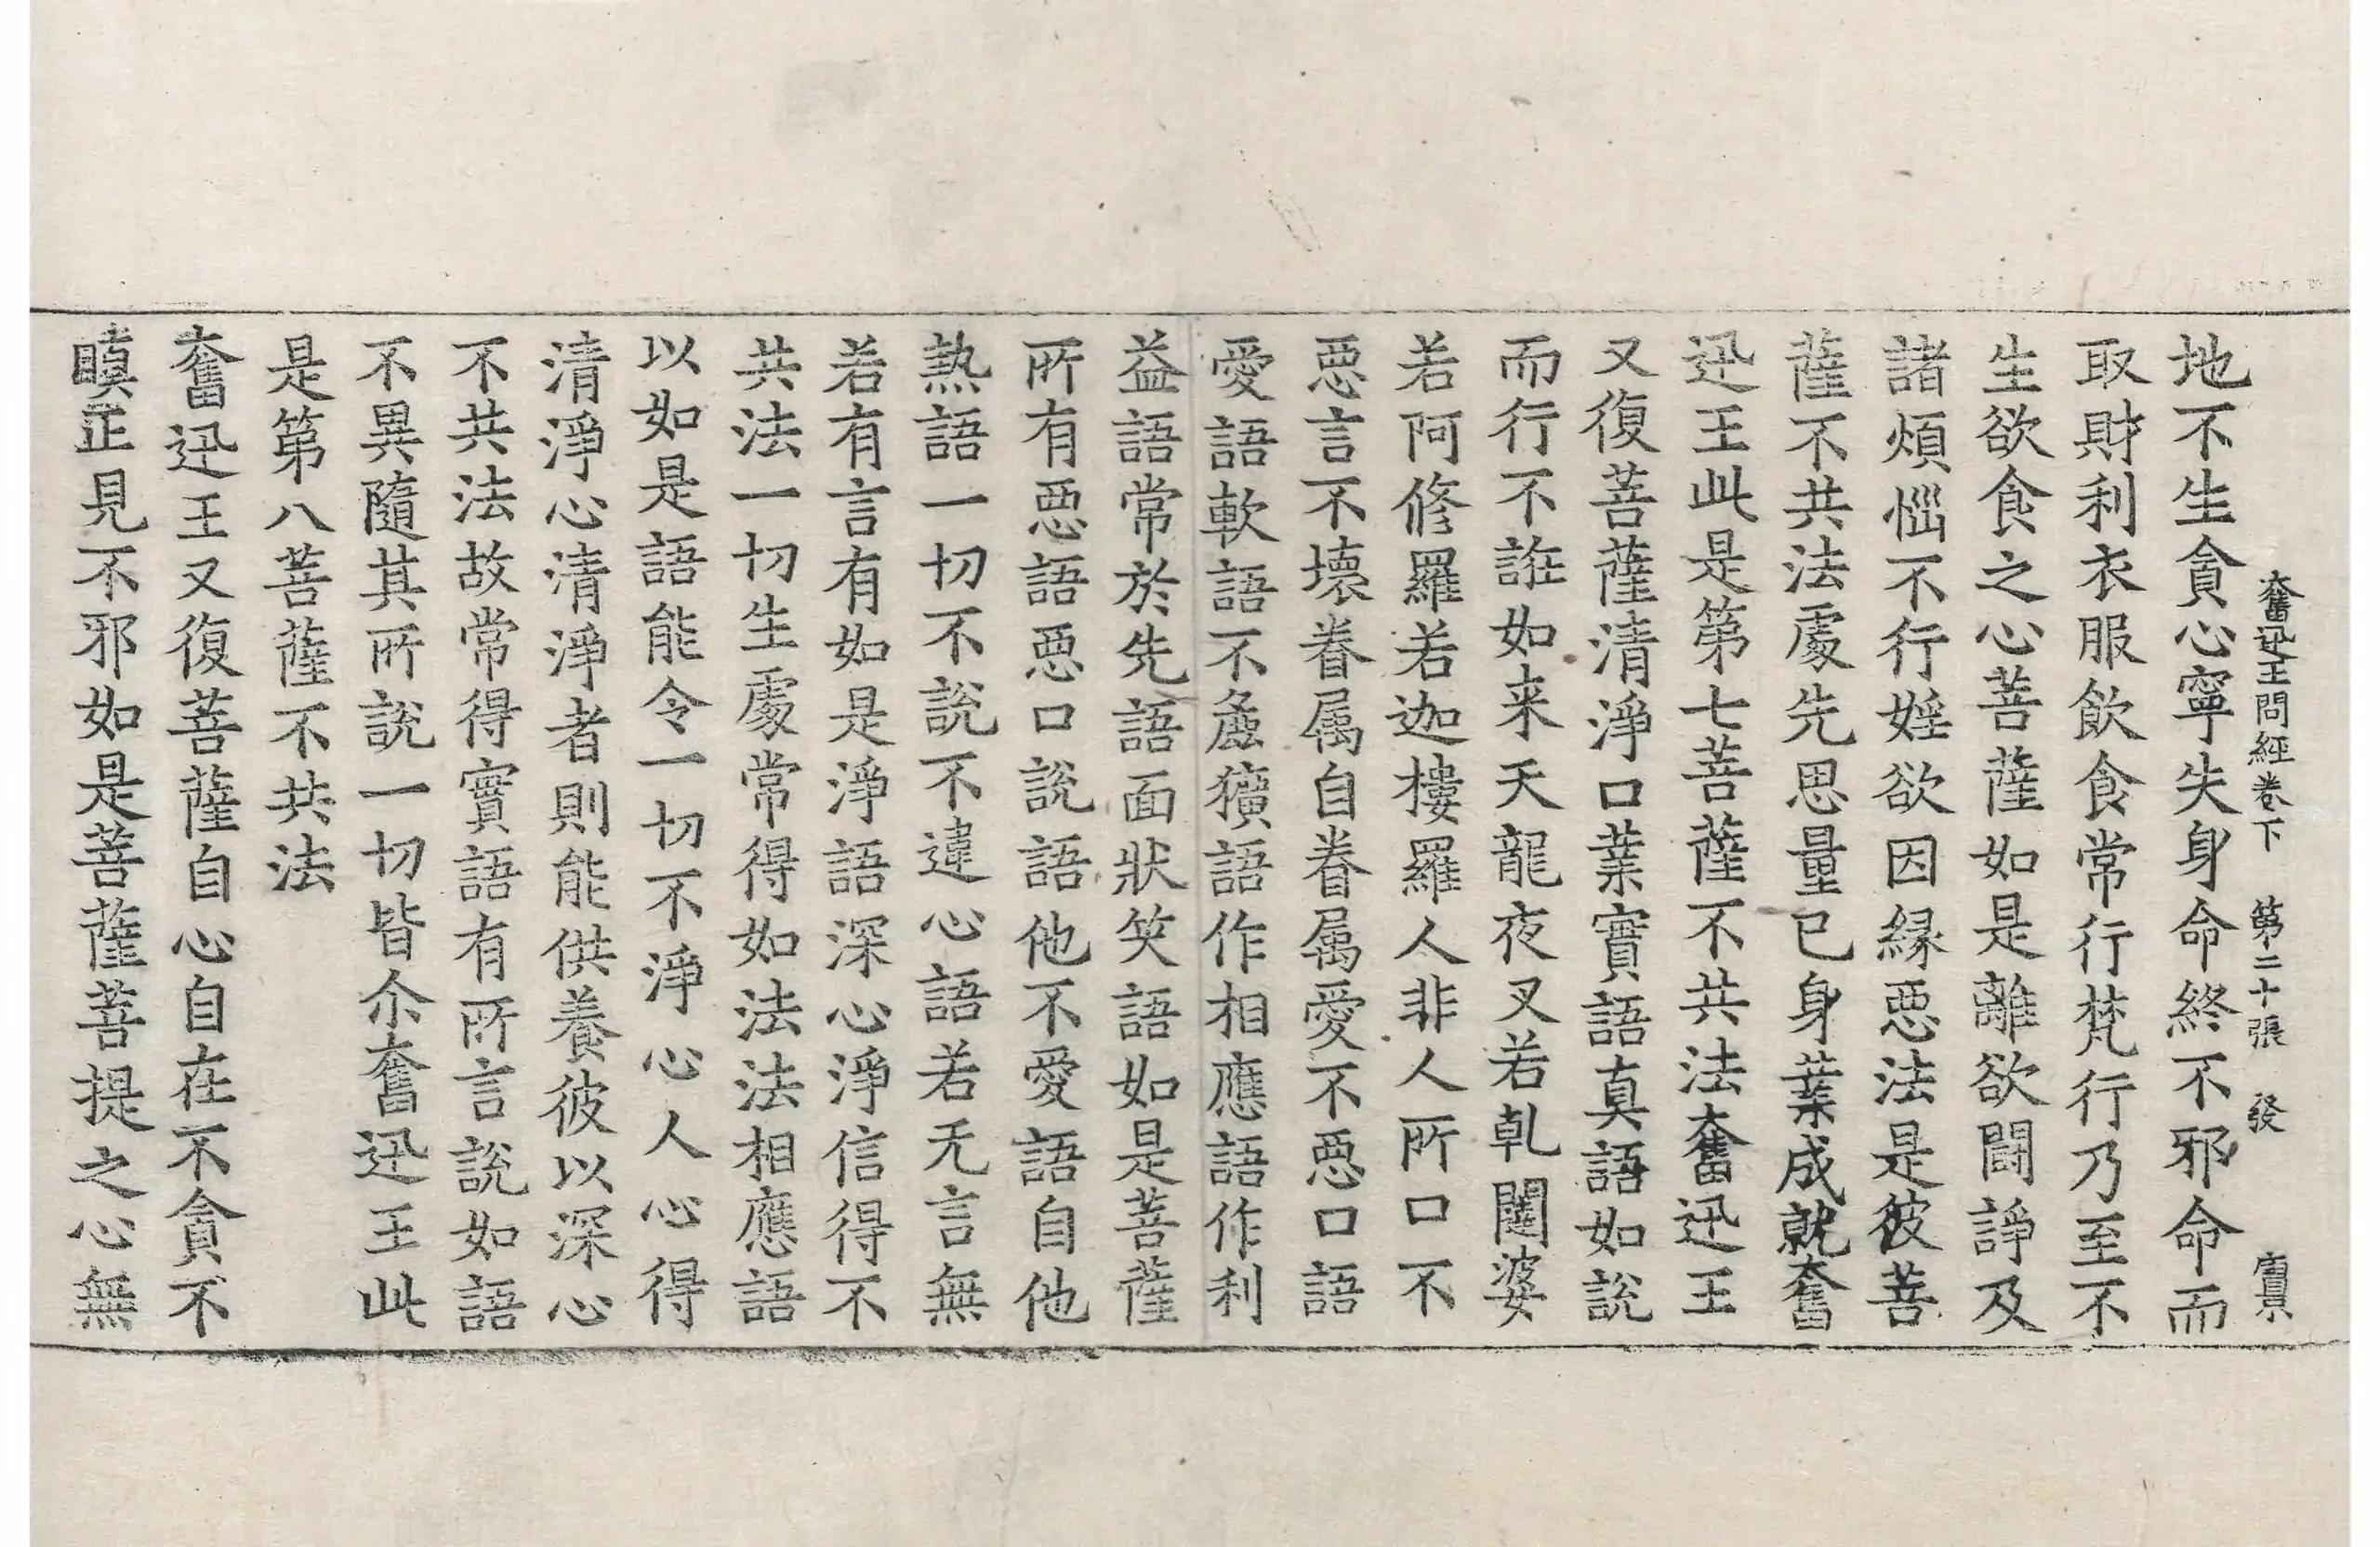 奮迅王問經卷下 第二十張 發 賔
地不生貪心寧失身命終不邪命而
取財利衣服飲食常行梵行乃至不
生欲食之心菩薩如是離欲鬪諍及
諸煩惱不行婬欲因緣惡法是彼菩
薩不共法處先思量已身業成就奮
迅王此是第七菩薩不共法奮迅王
又復菩薩清淨口業實語真語如說
而行不誑如来天龍夜叉若乹闥婆
若阿修羅若迦樓羅人非人所口不
惡言不壞眷属自眷属愛不惡口語
愛語軟語不麁獷語作相應語作利
益語常於先語面狀笑語如是菩薩
所有惡語惡口說語他不愛語自他
熱語一切不說不違心語若无言無
若有言有如是淨語深心淨信得不
共法一切生處常得如法法相應語
以如是語能令一切不淨心人心得
清淨心清淨者則能供養彼以深心
不共法故常得實語有所言說如語
不異隨其所說一切皆尒奮迅王此
是第八菩薩不共法
奮迅王又復菩薩自心自在不貪不
瞋正見不邪如是菩薩菩提之心無